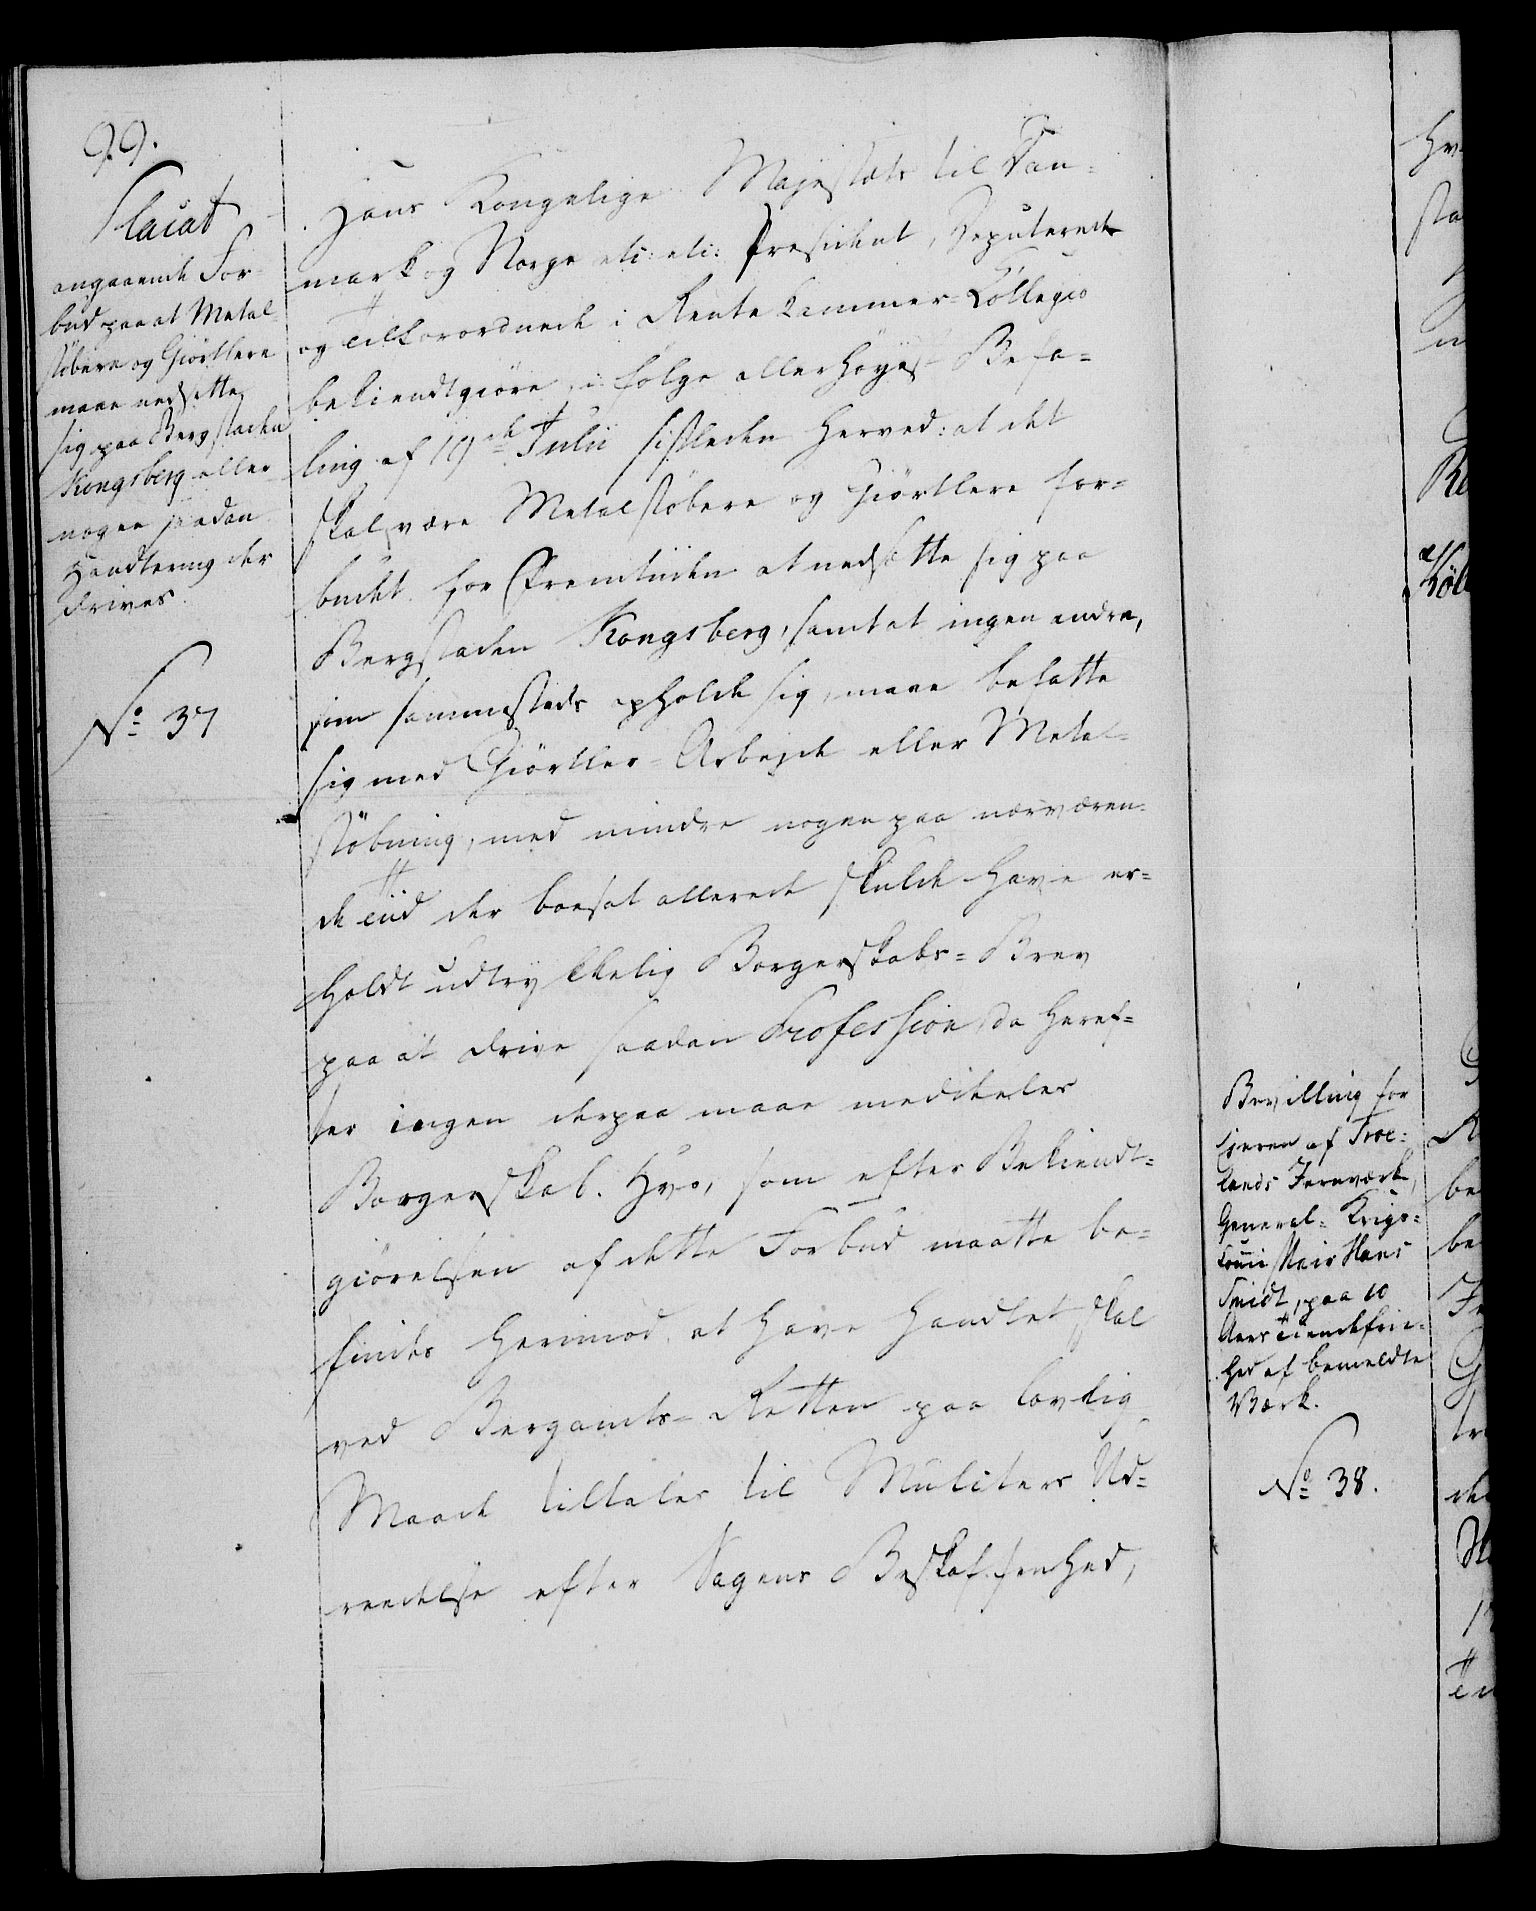 99.
Placat
angaaende For-
bud paa at Metal-
støbere og Giørtlere
maae nedsætte
sig paa Bergstaden
Kongsberg eller
nogen saadan
Handtering der
drives.
No 37
Hans Kongelige Majestæts til Dan-
mark og Norge etc: etc: Præsident, Deputerede
og Tilforordnede i Rente Kammer-Collegio
bekiendtgiøre, i følge allerhøyest Befa-
ling af 19de Julii sistleden herved: at det
skal være Metalstøbere og Giørtlere for-
budet for Fremtiiden at nedsætte sig paa
Bergstaden Kongsberg, samt at ingen andre,
som sammesteds opholde sig, maae befatte
sig med Giørtler-Arbejde eller Metal-
støbning, med mindre nogen paa nærværen-
de Tiid der boesat allerede skulde have er-
holdt udtrykkelig Borgerskabs-Brev
paa at drive saadan Profession, da heref-
ter ingen derpaa maae meddeeles
Borgerskab. Hvo, som efter Bekiendt-
giørelsen af dette Forbud maatte be-
findes herimod at have handlet, skal
ved Bergamts-Retten paa lovlig
Maade tiltales til Mulcters Ud-
reedelse efter Sagens Beskaffenhed,
Bevilling for
Ejeren af Froe-
lands Jernværk,
General-Krigs-
Commissair Hans
Smidt, paa 10
Aars Tiendefrie-
hed af bemeldte
Værk.
No 38.